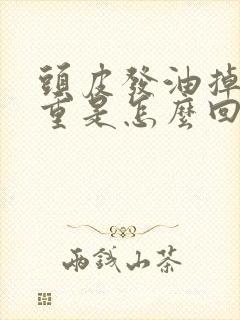 頭皮發油掉
重是怎麼回
兩錢山茶